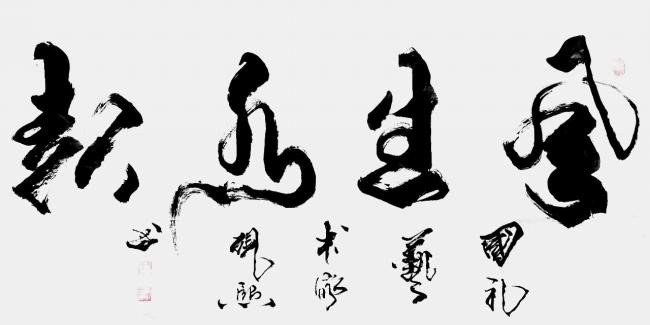 風生水起
國礼藝术家
熙书